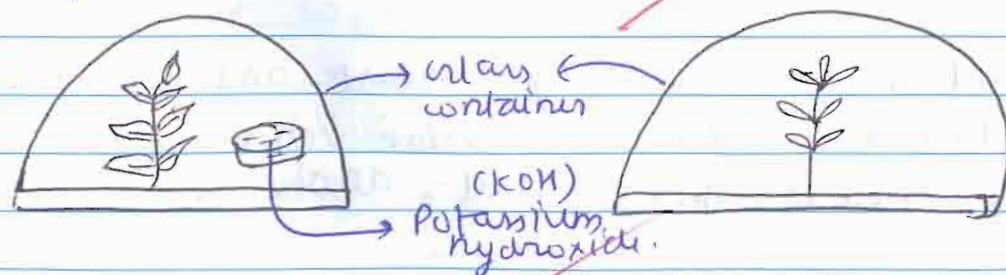 Glass
container
(KOH)
Potassium
hydroxide.